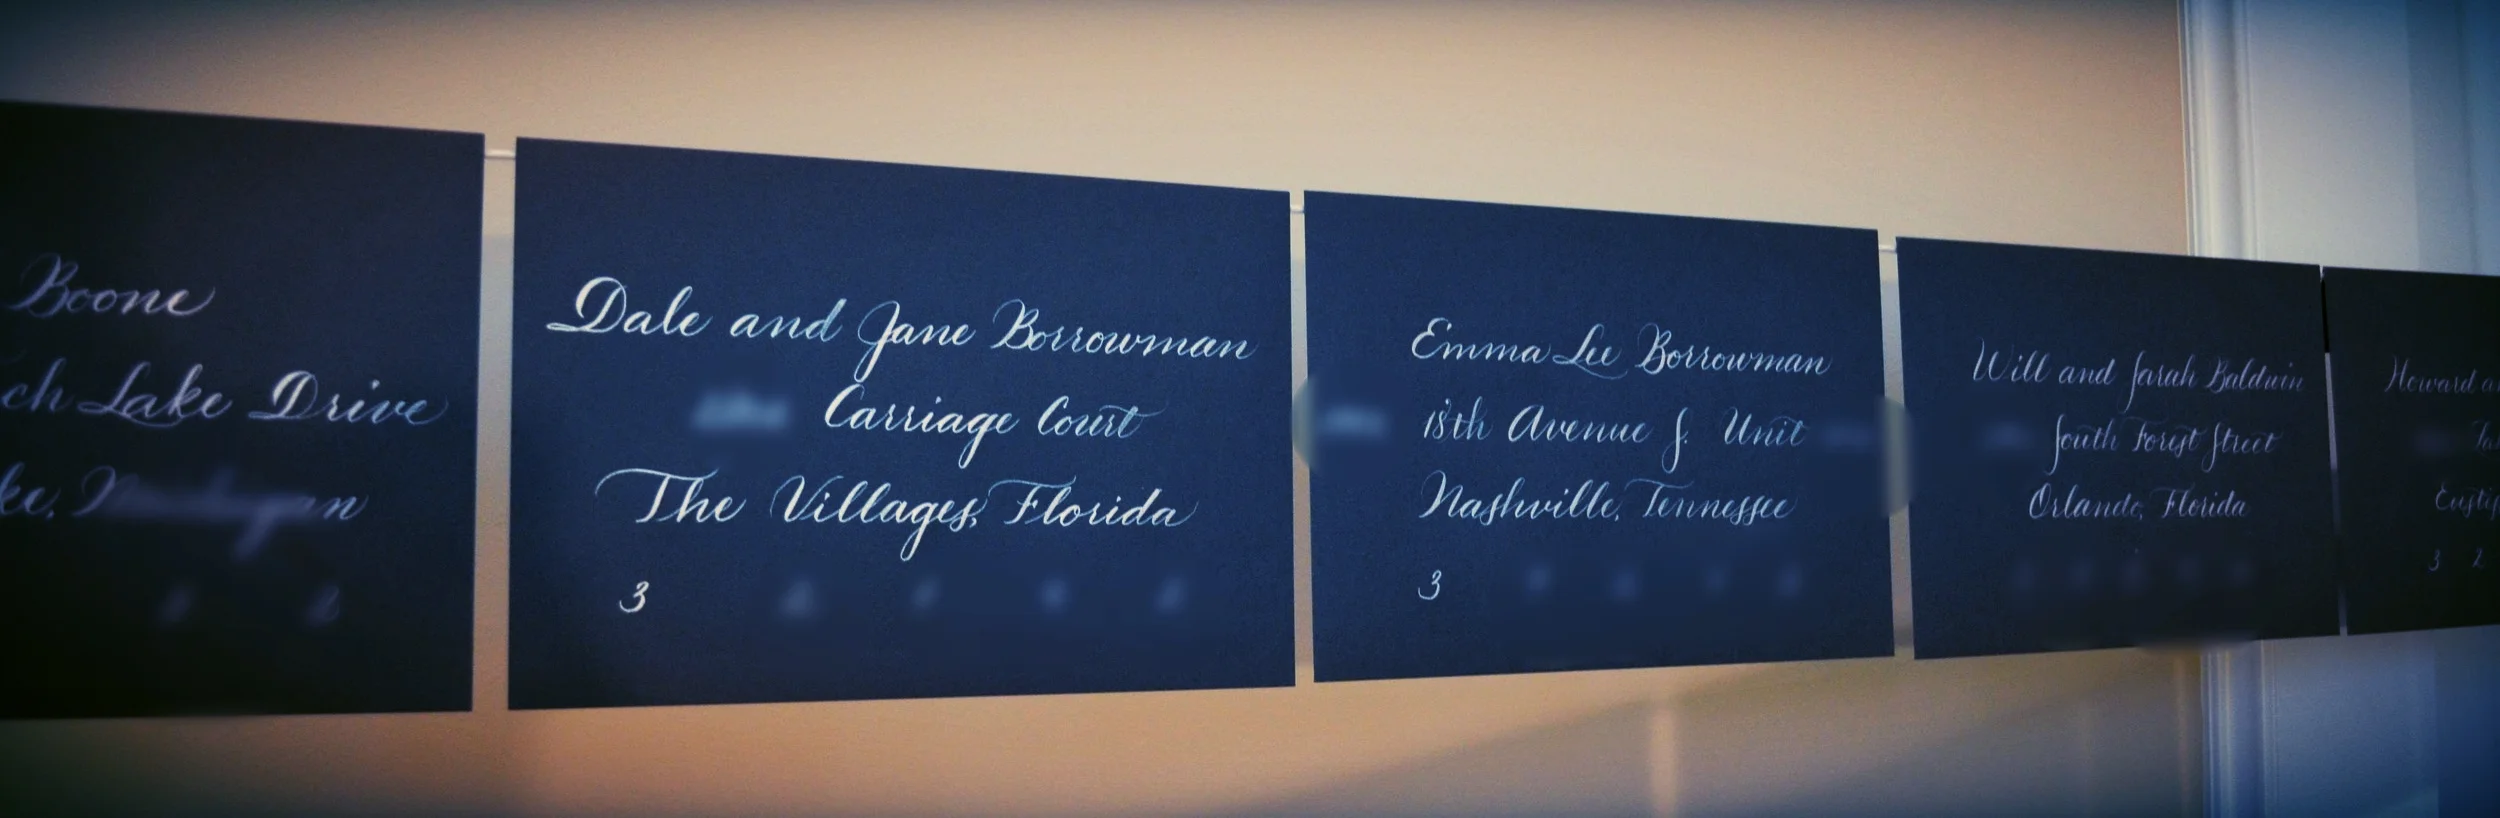 Boone
ch Lake Drive
ke,
Dale and Jane Borrowman
Carriage Court
The Villages, Florida
3
Emma Lee Borrowman
18th Avenue S. Unit
Nashville, Tennessee
3
Will and Sarah Baldwin
South Forest Street
Orlando, Florida
Howard a
Eustis
3 2